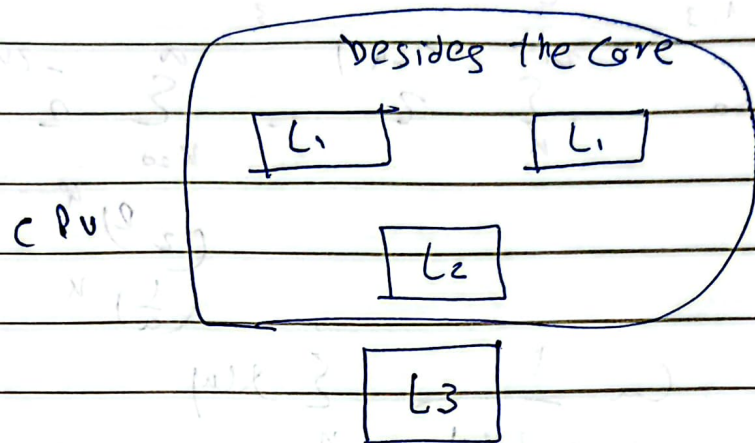 besides the core
L1 L1
CPU
L2
L3